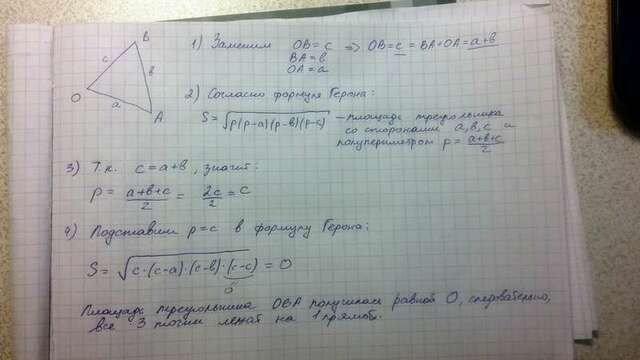 1) Заменим OB = c ⇒ OB = c = BA + OA = a + b
BA = b
OA = a
B
c
b
O
a
A
2) Согласно формуле Герона:
S = √p(p-a)(p-b)(p-c) – площадь треугольника
со сторонами a, b, c и
полупериметром p = a+b+c / 2
3) Т.к. c = a + b, значит:
p = a+b+c / 2 = 2c / 2 = c
4) Подставим p = c в формулу Герона:
S = √c·(c-a)·(c-b)·(c-c) = 0
Площадь треугольника OBA получилась равной 0, следовательно,
все 3 точки лежат на 1 прямой.